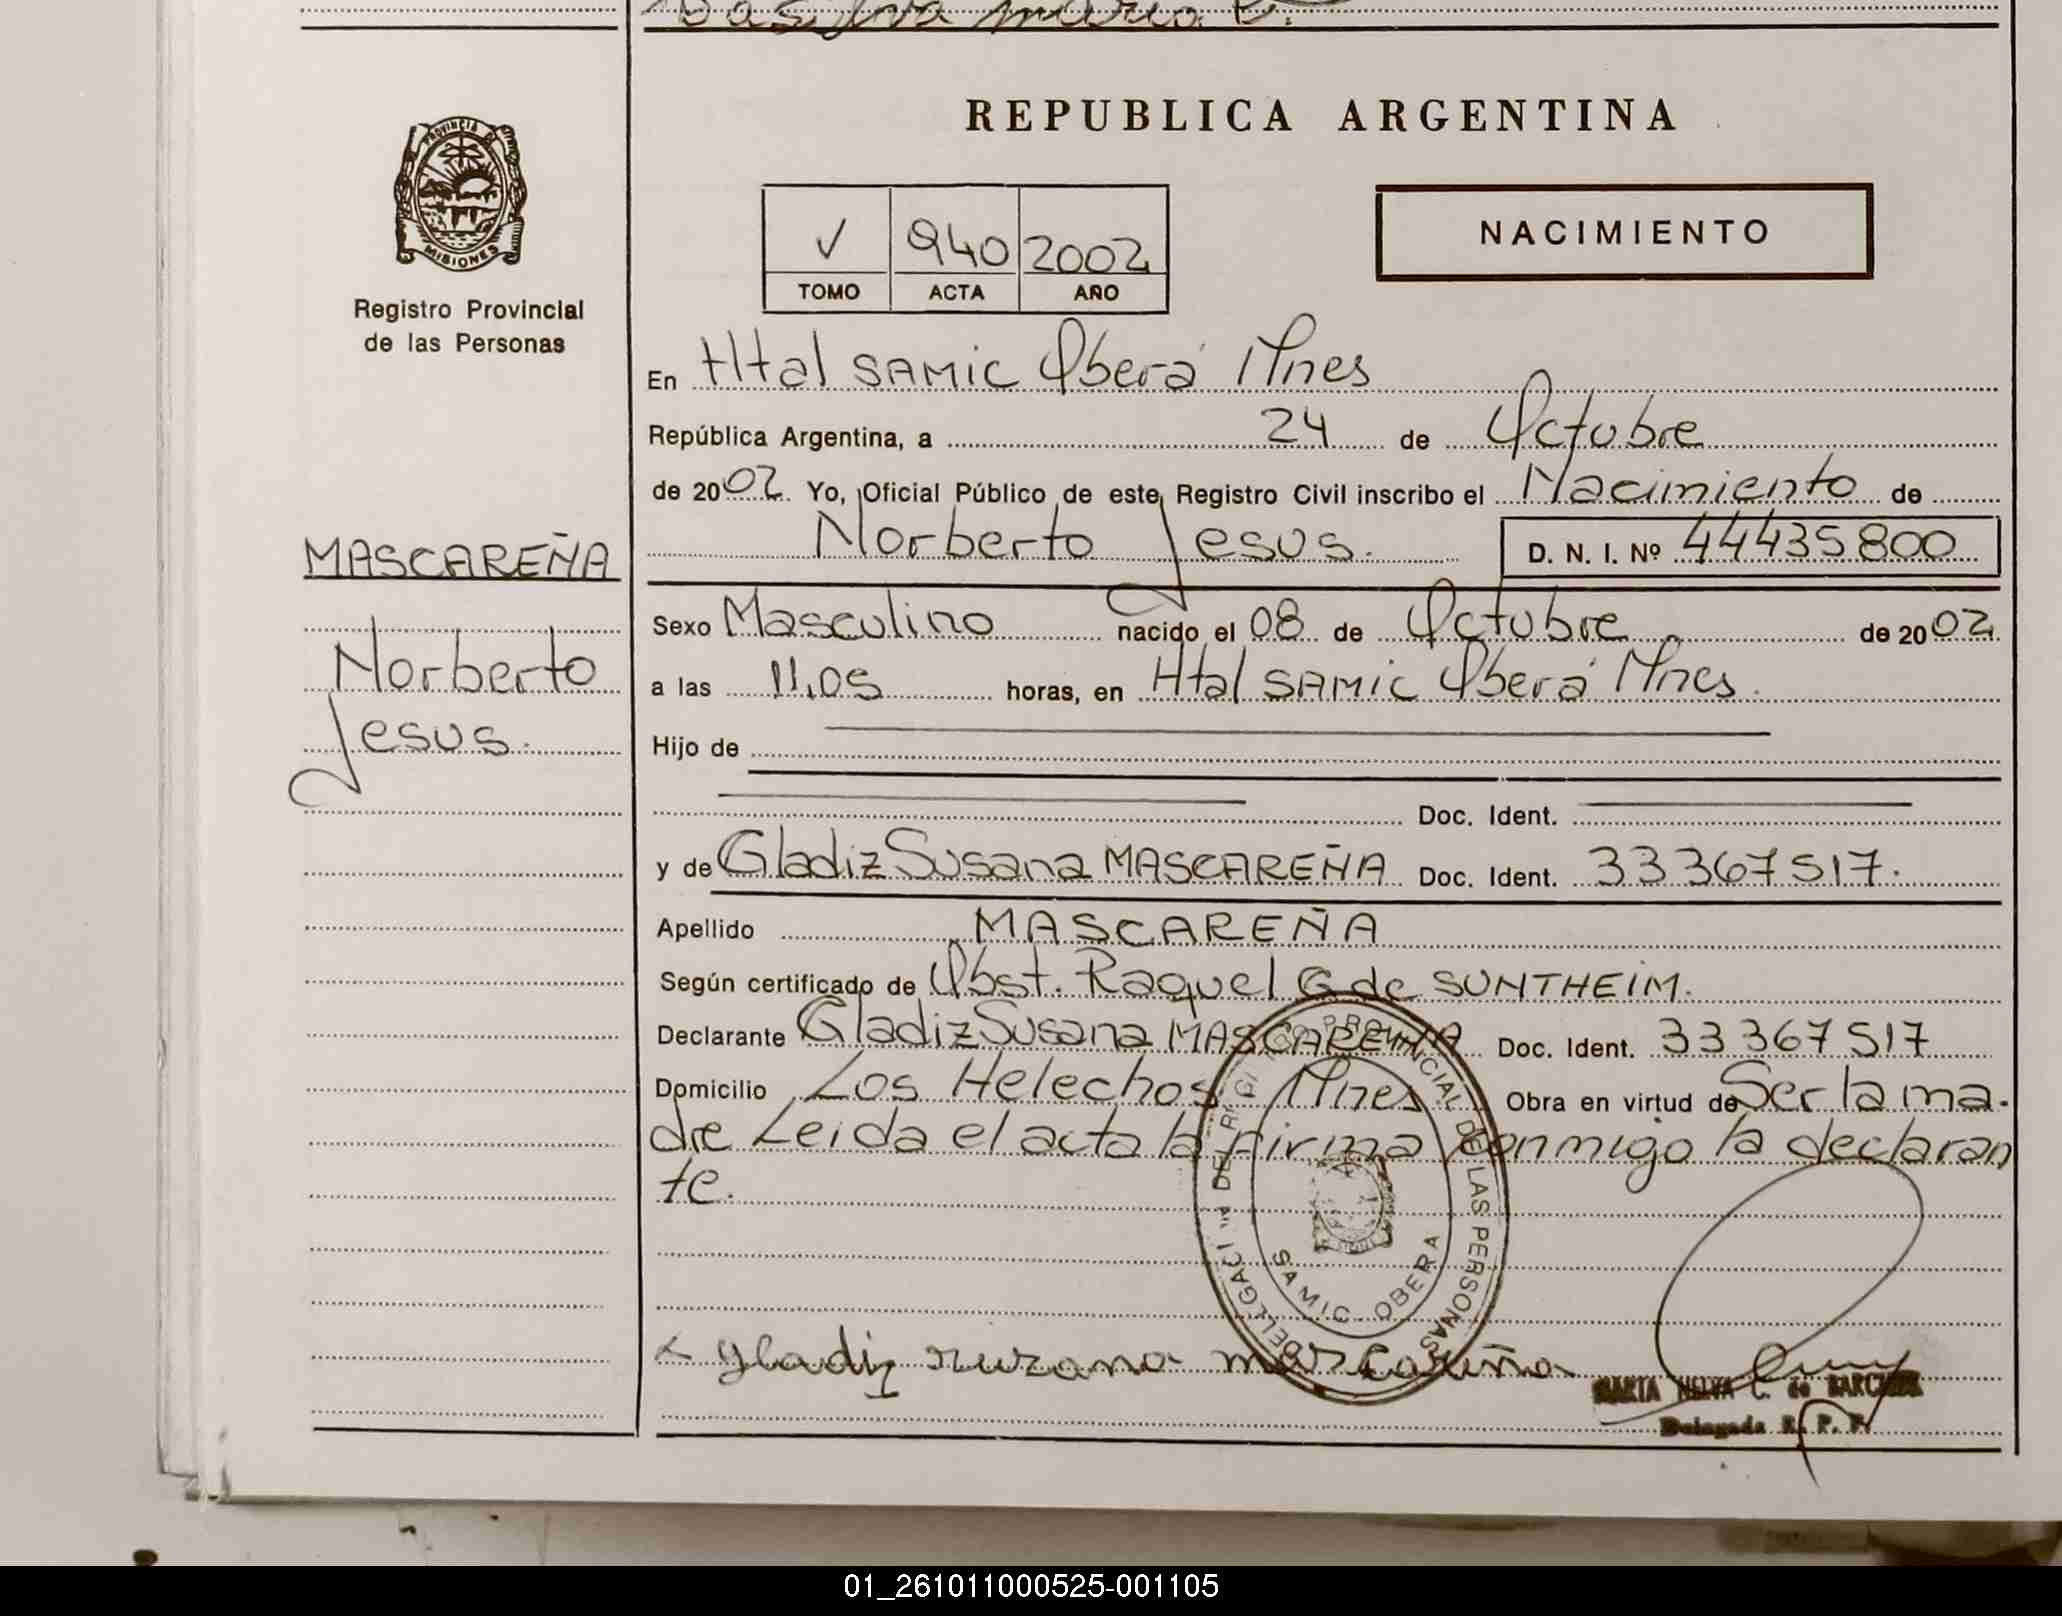 Dasilva maria E.
PROVINCIA DE
MISIONES
Registro Provincial
de las Personas
REPUBLICA ARGENTINA
V 940 2002
TOMO ACTA AÑO
NACIMIENTO
En Htal SAMIC Oberá Mnes
República Argentina, a 24 de Octubre
de 2002. Yo, Oficial Público de este Registro Civil inscribo el Nacimiento de
Norberto Jesus. D. N. I. Nº 44435800
MASCAREÑA
Norberto
Jesus.
Sexo Masculino nacido el 08 de Octubre de 2002.
a las 11,05 horas, en Htal SAMIC Oberá Mnes.
Hijo de
Doc. Ident.
y de Gladiz Susana MASCAREÑA Doc. Ident. 33367517.
Apellido MASCAREÑA
Según certificado de Obst. Raquel G de SUNTHEIM.
Declarante Gladiz Susana MASCAREÑA Doc. Ident. 33367517
Domicilio Los Helechos Mnes Obra en virtud de Ser la ma-
dre Leida el acta la firma conmigo la declaran
te.
PROVINCIAL DE LAS PERSONAS
SAMIC OBERA
x gladiz susana mascareña
MARIA NELVA C. de
Delegada R. P. P.
01_261011000525-001105